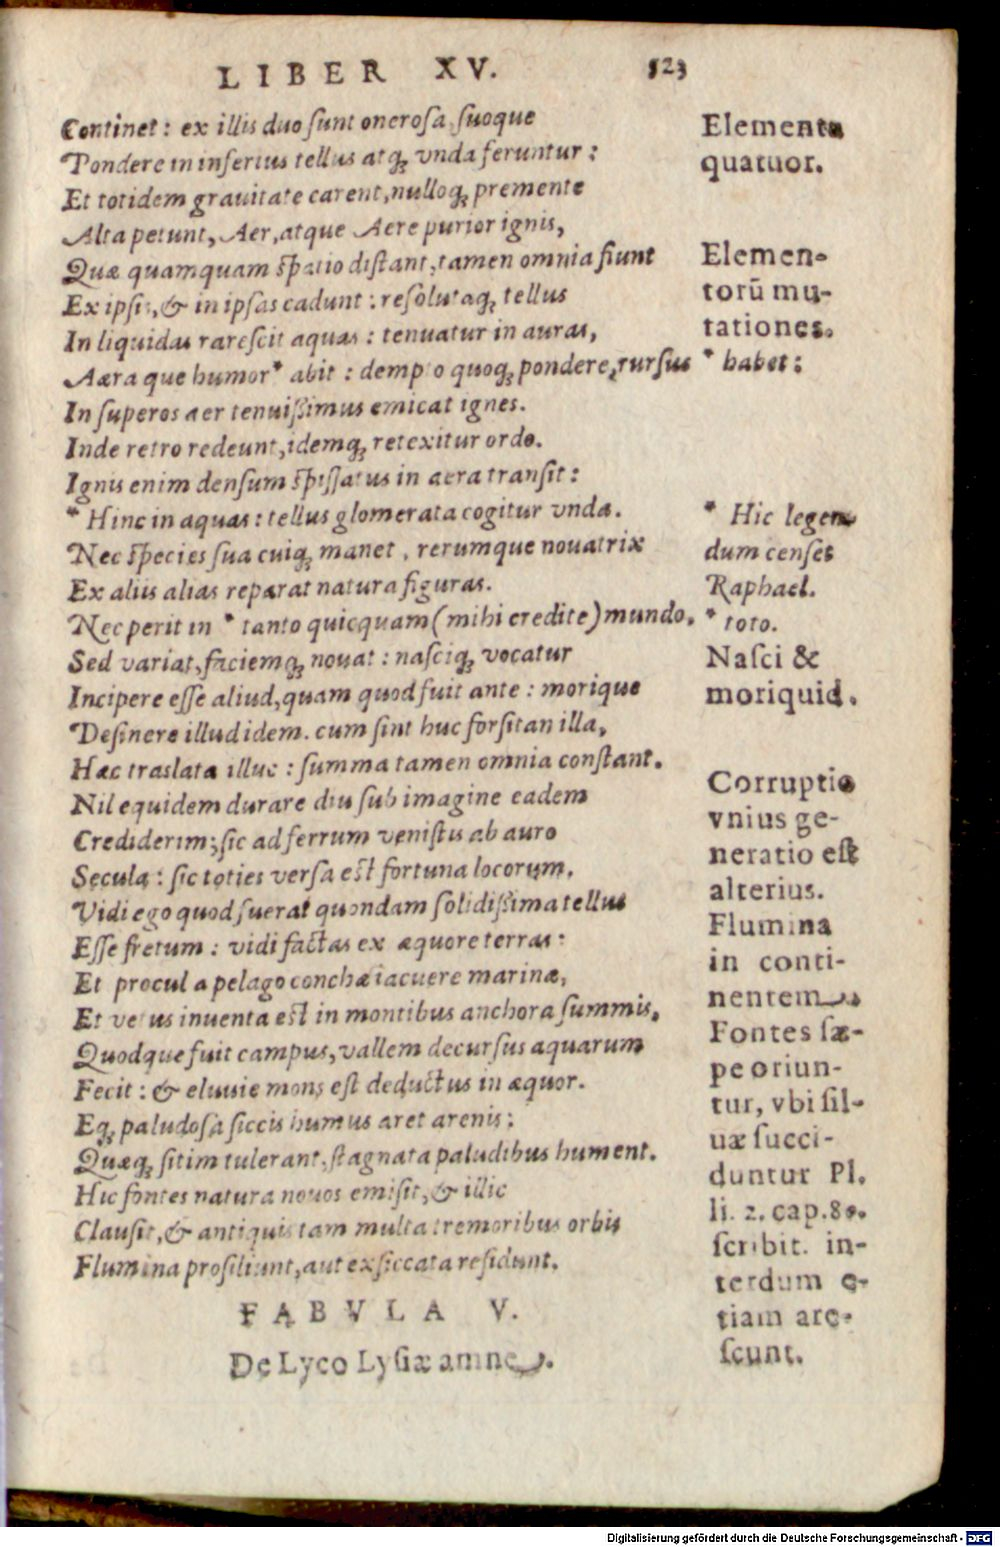 LIBER XV. 523
Continet: ex illis duo sunt onerosa, suoque
Pondere in inferius tellus atq́; vnda feruntur:
Et totidem grauitate carent, nulloq́; premente
Alta petunt, Aer, atque Aere purior ignis,
Quæ quamquam spatio distant, tamen omnia fiunt
Ex ipsis, & in ipsas cadunt: resolutaq́; tellus
In liquidas rarescit aquas: tenuatur in auras,
Aæraque humor* abit: dempto quoq́; pondere, rursus
In superos aer tenuissimus emicat ignes.
Inde retro redeunt, idemq́; retexitur ordo.
Ignis enim densum spissatus in aera transit:
* Hinc in aquas: tellus glomerata cogitur vnda.
Nec species sua cuiq́; manet, rerumque nouatrix
Ex aliis alias reparat natura figuras.
Nec perit in * tanto quicquam (mihi credite) mundo,
Sed variat, faciemq́; nouat: nasciq́; vocatur
Incipere esse aliud, quam quod fuit ante: morique
Desinere illud idem. cum sint huc forsitan illa,
Hæc traslata illuc: summa tamen omnia constant.
Nil equidem durare diu sub imagine eadem
Crediderim; sic ad ferrum venistis ab auro
Secula: sic toties versa est fortuna locorum,
Vidi ego quod fuerat quondam solidissima tellus
Esse fretum: vidi factas ex æquore terras:
Et procul a pelago conchæ iacuere marinæ,
Et vetus inuenta est in montibus anchora summis,
Quodque fuit campus, vallem decursus aquarum
Fecit: & eluuie mons est deductus in æquor.
Eq́; paludosa siccis humus aret arenis:
Quæq́; sitim tulerant, stagnata paludibus hument.
Hic fontes natura nouos emisit, & illic
Clausit, & antiquis tam multa tremoribus orbis
Flumina prosiliunt, aut exsiccata residunt.
FABVLA V.
De Lyco Lysiæ amne.
Elementa
quatuor.
Elemen-
torū mu-
tationes.
* habet:
* Hic legen
dum censet
Raphael.
* toto.
Nasci &
mori quid.
Corruptio
vnius ge-
neratio est
alterius.
Flumina
in conti-
nentem
Fontes sæ-
pe oriun-
tur, vbi sil-
uæ succi-
duntur Pl.
li. 2. cap. 80.
scribit. in-
terdum e-
tiam are-
scunt.
Digitalisierung gefördert durch die Deutsche Forschungsgemeinschaft - DFG